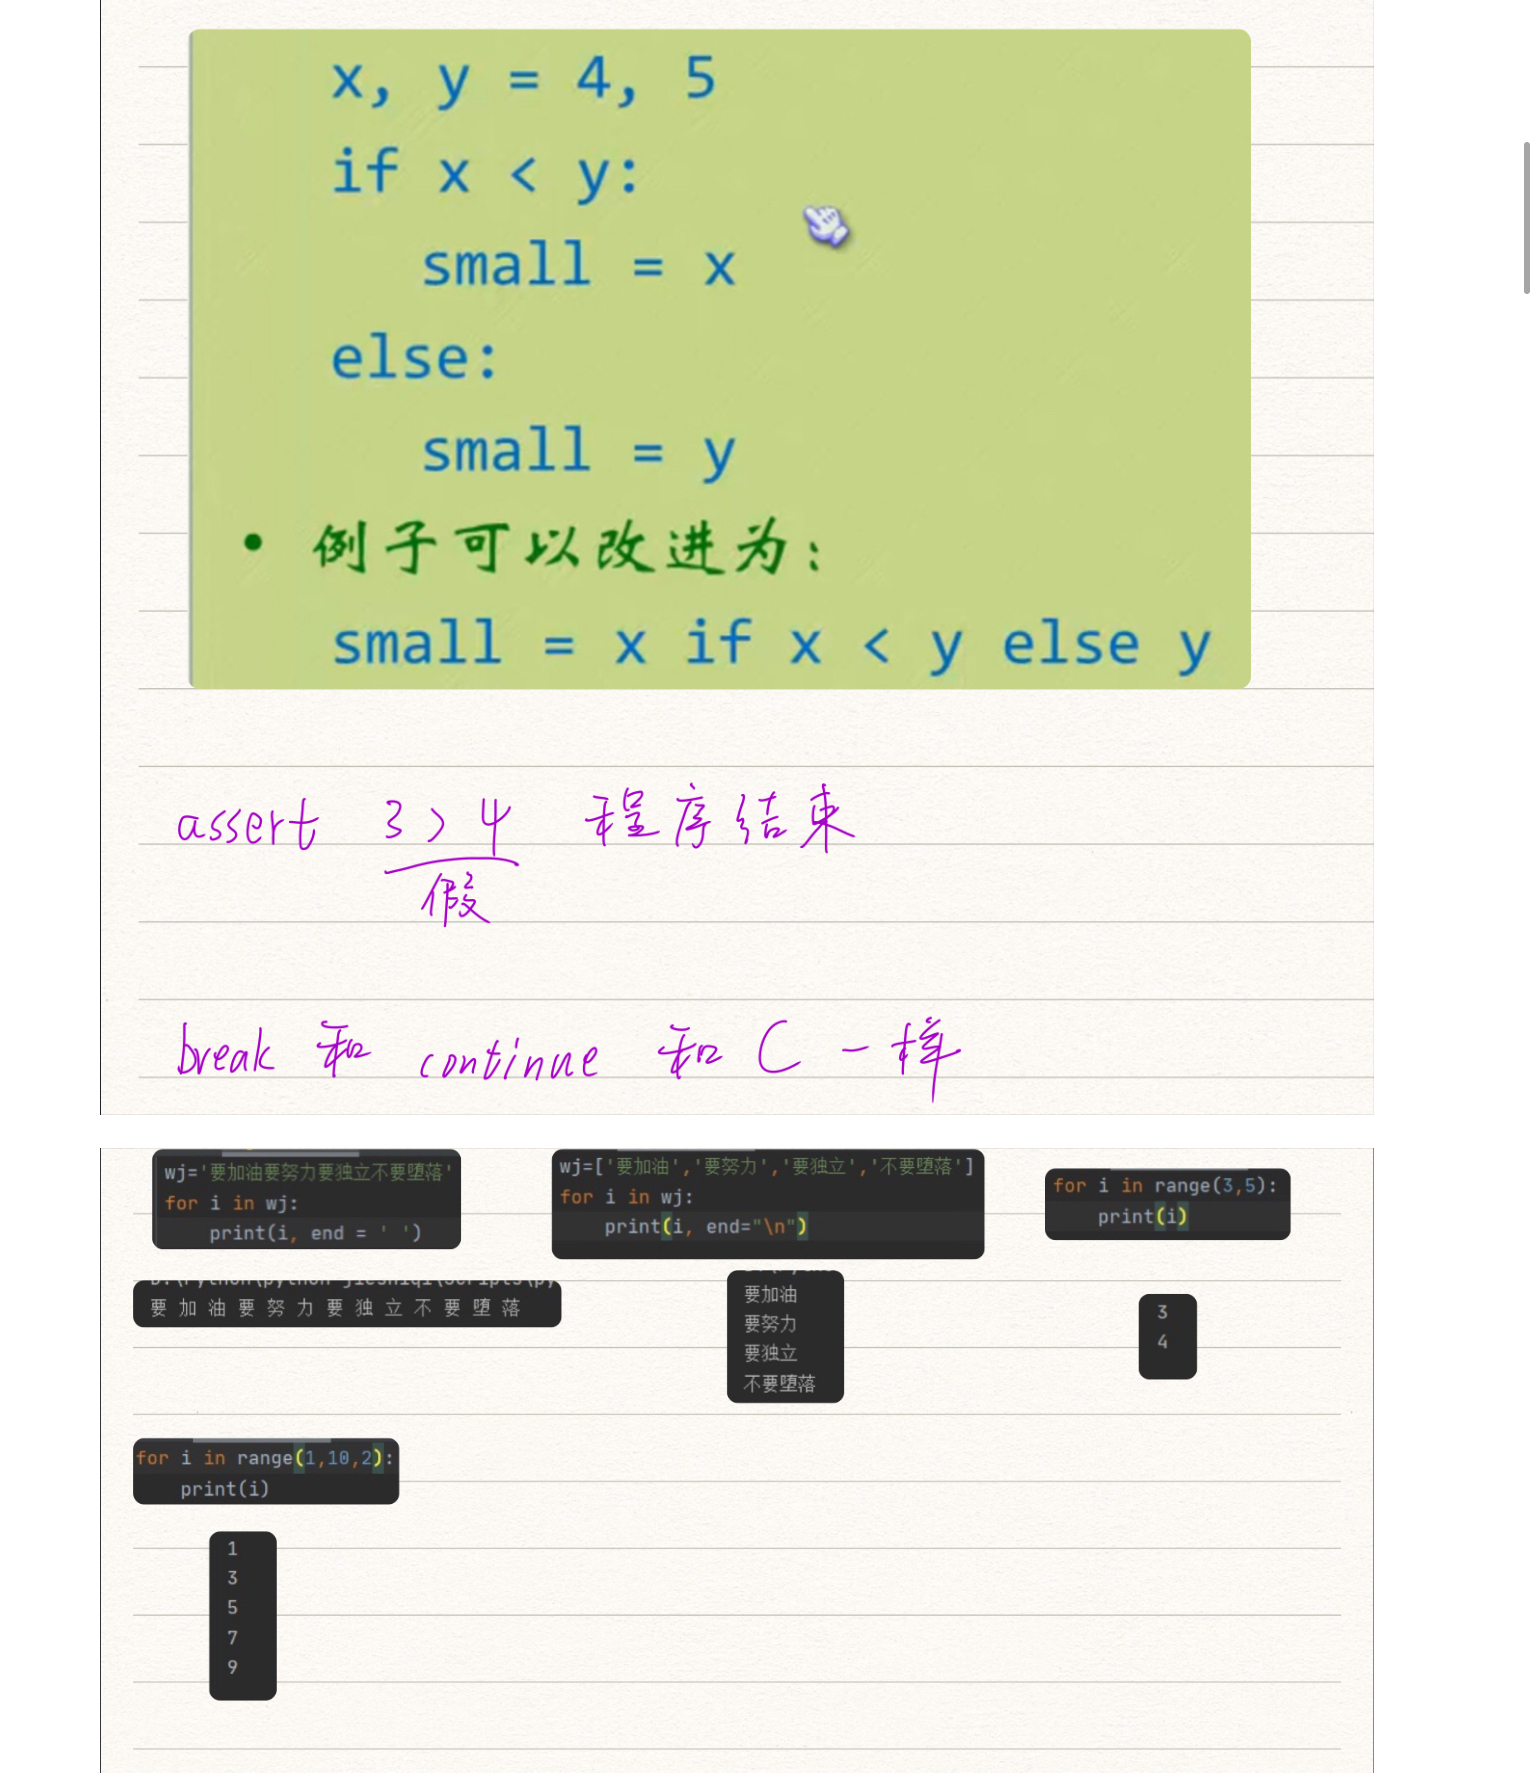 x, y = 4, 5
if x < y:
small = x
else:
small = y
• 例子可以改进为：
small = x if x < y else y
assert 3>4 程序结束
假
break 和 continue 和 C 一样
wj='要加油要努力要独立不要堕落'
for i in wj:
print(i, end = ' ')
要 加 油 要 努 力 要 独 立 不 要 堕 落
wj=['要加油','要努力','要独立','不要堕落']
for i in wj:
print(i, end="\n")
要加油
要努力
要独立
不要堕落
for i in range(3,5):
print(i)
3
4
for i in range(1,10,2):
print(i)
1
3
5
7
9